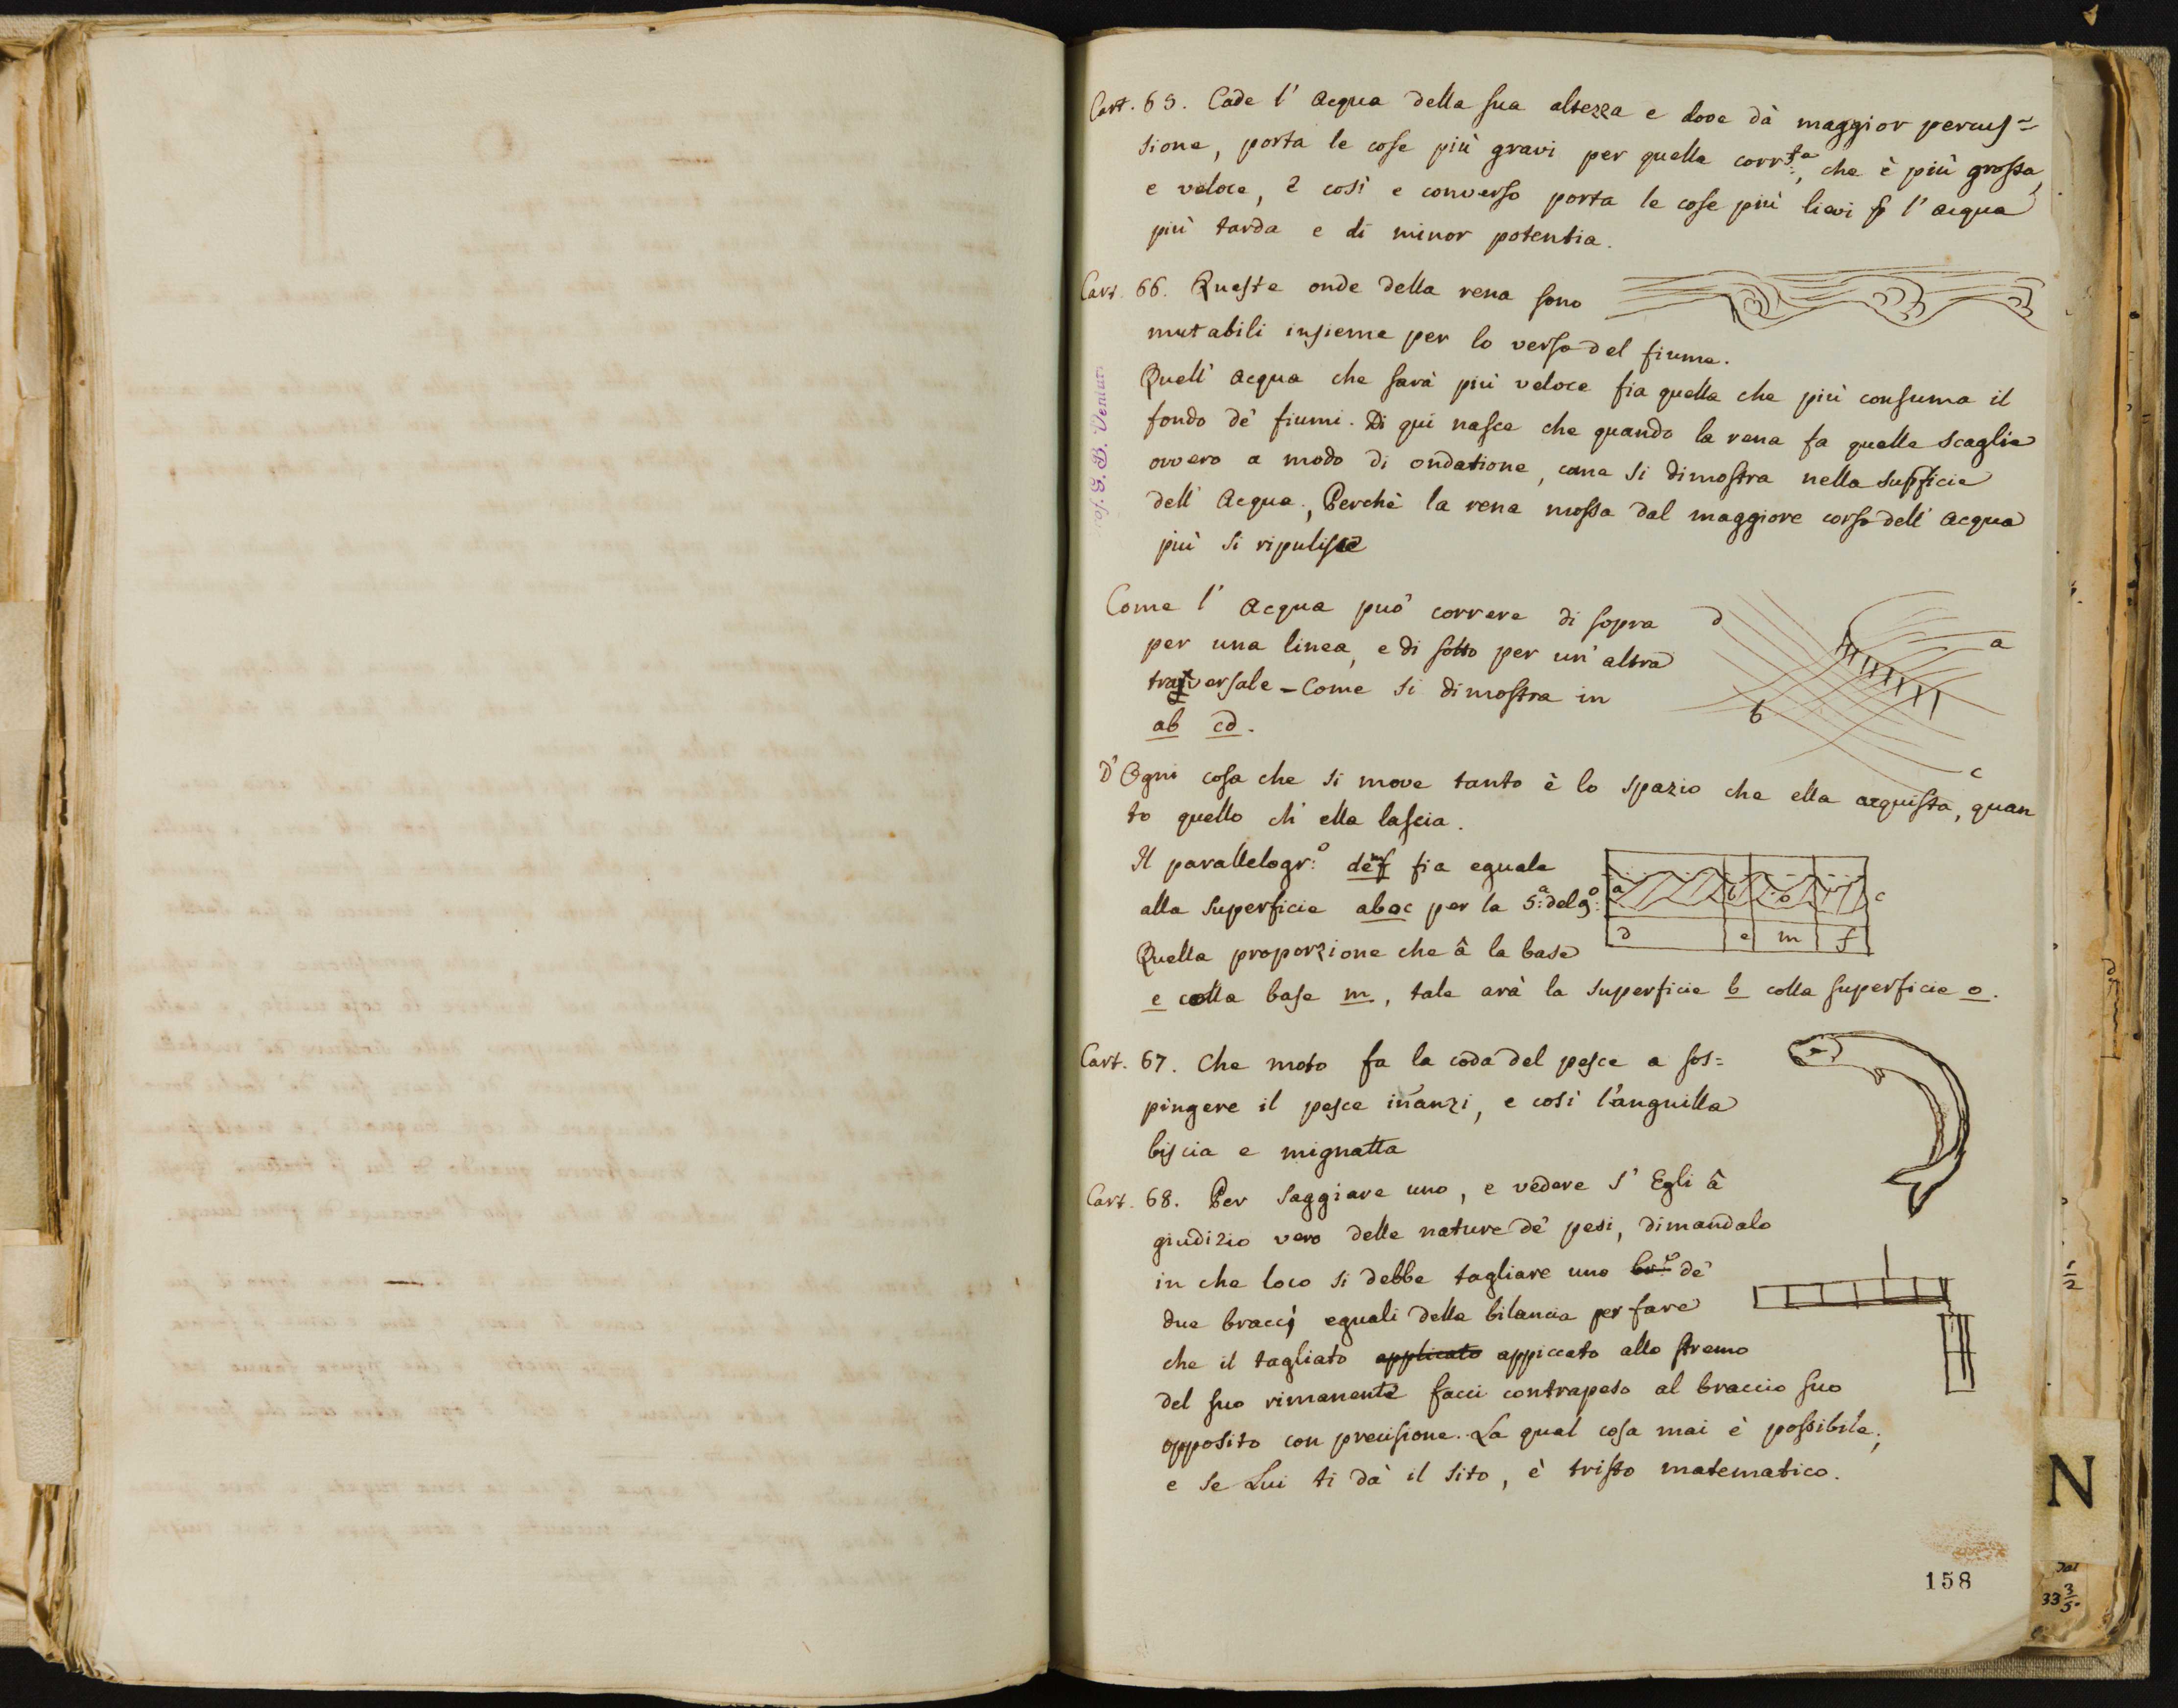 Cart. 65. Cade l' Acqua della sua altezza e dove dà maggior percus=
sione, porta le cose più gravi per quella corr.te, che è più grossa,
e veloce, e così e converso porta le cose più lievi p l' acqua
più tarda e di minor potentia.
Cart. 66. Queste onde della rena sono
mutabili insieme per lo verso del fiume.
Quell' Acqua che sarà più veloce fia quella che più consuma il
fondo de' fiumi. Di qui nasce che quando la rena fa quelle scaglie
ovvero a modo di ondatione, come si dimostra nella supficie
dell' Acqua, Perchè la rena mossa dal maggiore corso dell' Acqua
più si ripulisce
Come l' Acqua può correre di sopra
per una linea, e di sotto per un' altra
trasversale - Come si dimostra in
ab cd.
d
a
b
c
D' Ogni cosa che si move tanto è lo spazio che ella acquista, quan
to quello ch' ella lascia.
Il parallelogr:o demf fia eguale
alla superficie aboc per la 5:a del 9:o
Quella proporzione che â la base
e colla base m, tale arà la superficie b colla superficie o.
a b o c
d e m f
Cart. 67. Che moto fa la coda del pesce a sos=
pingere il pesce inanzi, e così l'anguilla
biscia e mignatta
Cart. 68. Per saggiare uno, e vedere s' Egli â
giudizio vero delle nature de' pesi, dimandalo
in che loco si debbe tagliare uno br:o de'
due bracci eguali della bilancia per fare
che il tagliato applicato appiccato allo stremo
del suo rimanente facci contrapeso al braccio suo
opposito con precisione. La qual cosa mai è possibile;
e se Lui ti dà il sito, è tristo matematico.
Prof. G. B. Venturi
158
N
1/2
Dal
33 3/5